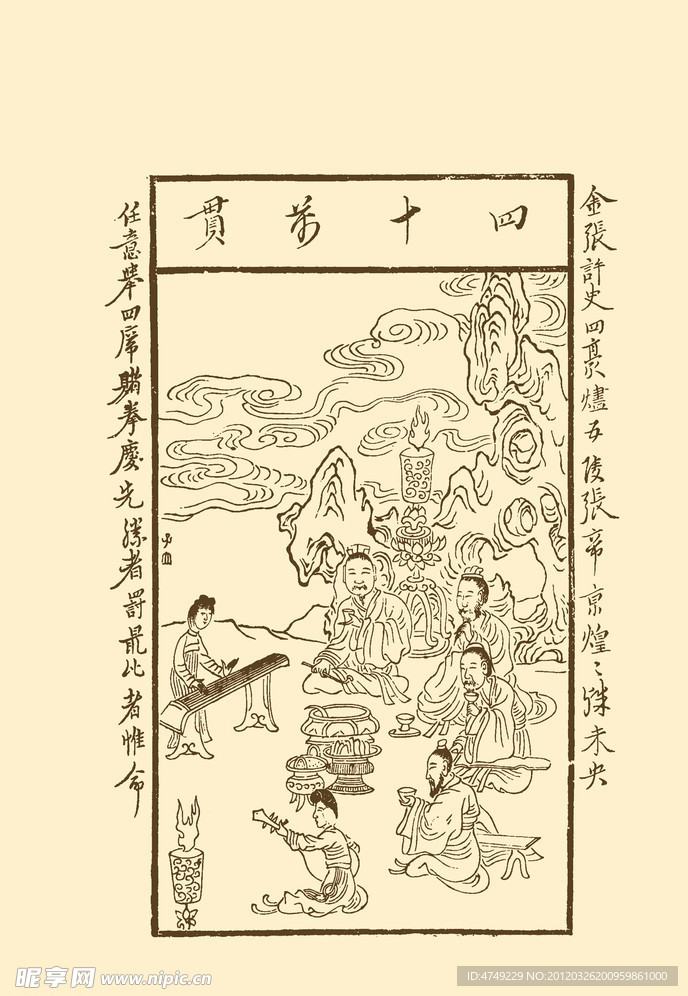 四十萬貫
金張許史四豪燼五陵張帝京煌〻殊未央
任意舉四席賭拳慶先勝者罰最北者惟命
昵享网 www.nipic.cn
ID:4749229 NO:20120326200959861000